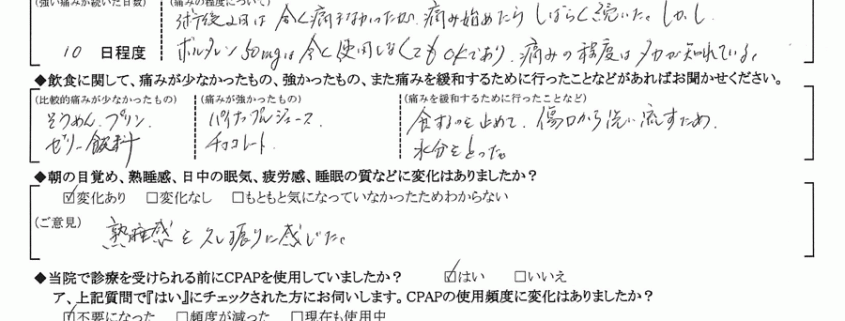 (強い痛みが続いた日数) (痛みの程度について)
術後2日は全く痛まなかったため、痛み始めたらしばらく続いた。しかし
10 日程度 ボルタレン50mgは全く使用しなくてもOKであり、痛みの程度はタカが知れている。
◆飲食に関して、痛みが少なかったもの、強かったもの、また痛みを緩和するために行ったことなどがあればお聞かせください。
(比較的痛みが少なかったもの) (痛みが強かったもの) (痛みを緩和するために行ったことなど)
そうめん、プリン、 パイナップルジュース、 食するのを止めて、傷口から洗い流すため、
ゼリー飲料 チョコレート、 水分をとった。
◆朝の目覚め、熟睡感、日中の眠気、疲労感、睡眠の質などに変化はありましたか?
☑変化あり □変化なし □もともと気になっていなかったためわからない
(ご意見) 熟睡感を久し振りに感じた。
◆当院で診療を受けられる前にCPAPを使用していましたか? ☑はい □いいえ
ア、上記質問で『はい』にチェックされた方にお伺いします。CPAPの使用頻度に変化はありましたか?
☑不要になった □頻度が減った □現在も使用中